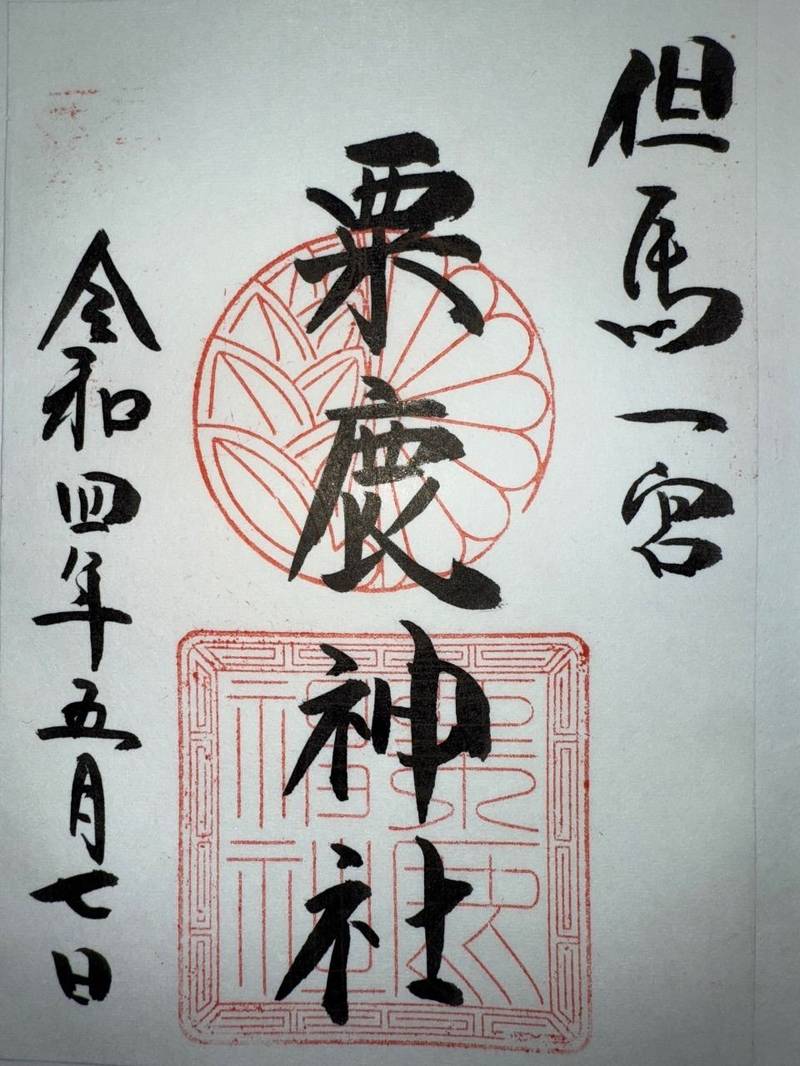 但馬一宮
粟鹿神社
令和四年五月七日